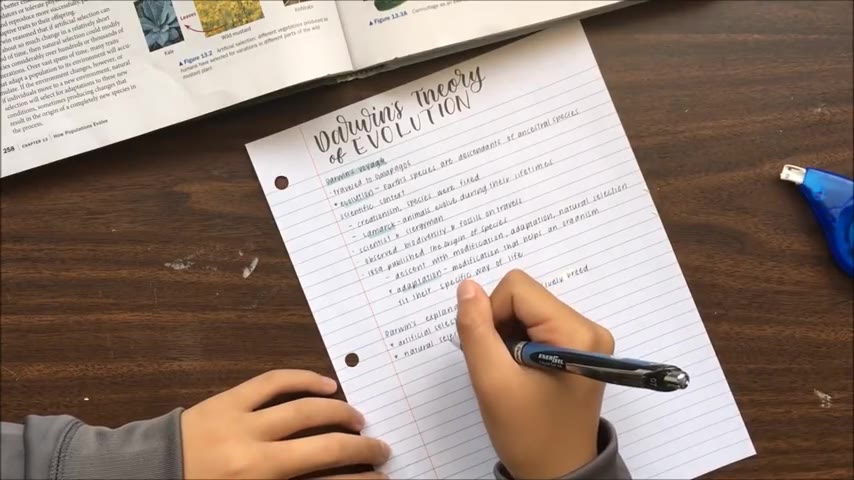 better
or tolerate
reproduce more successfully, p
reasoned that if artificial selection
so much change in a relatively short
of time, then natural selection could modify
considerably over hundreds or thousands of
erations. Over vast spans of time, many traits
adapt a population to its environment will accu-
If the environment changes, however, or
if individuals move to a new environment, natural
selection will select for adaptations to these new
conditions, sometimes producing changes that
result in the origin of a completely new species in
the process.
258 CHAPTER 13 | How Populations Evolve
Leaves
Kale
Wild mustard
Kohlrabi
▲ Figure 13.2 Artificial selection: different vegetables produced as
humans have selected for variations in different parts of the wild
mustard plant
▲ Figure 13.3A Camouflage as an
Darwin's Theory
of EVOLUTION
Darwin's voyage
- traveled to Galapagos
* evolution - Earth's species are descendants of ancestral species
scientific context
- creationism, species were fixed
- Lamarck - animals evolve during their lifetimes
- scientist & clergyman
- observed biodiversity & fossils on travels
- 1859 published The Origin of Species
- descent with modification, adaptation, natural selection
* adaptation - modification that helps an organism
fit their specific way of life
Darwin's breed
* artificial
* natural
ENERGEL